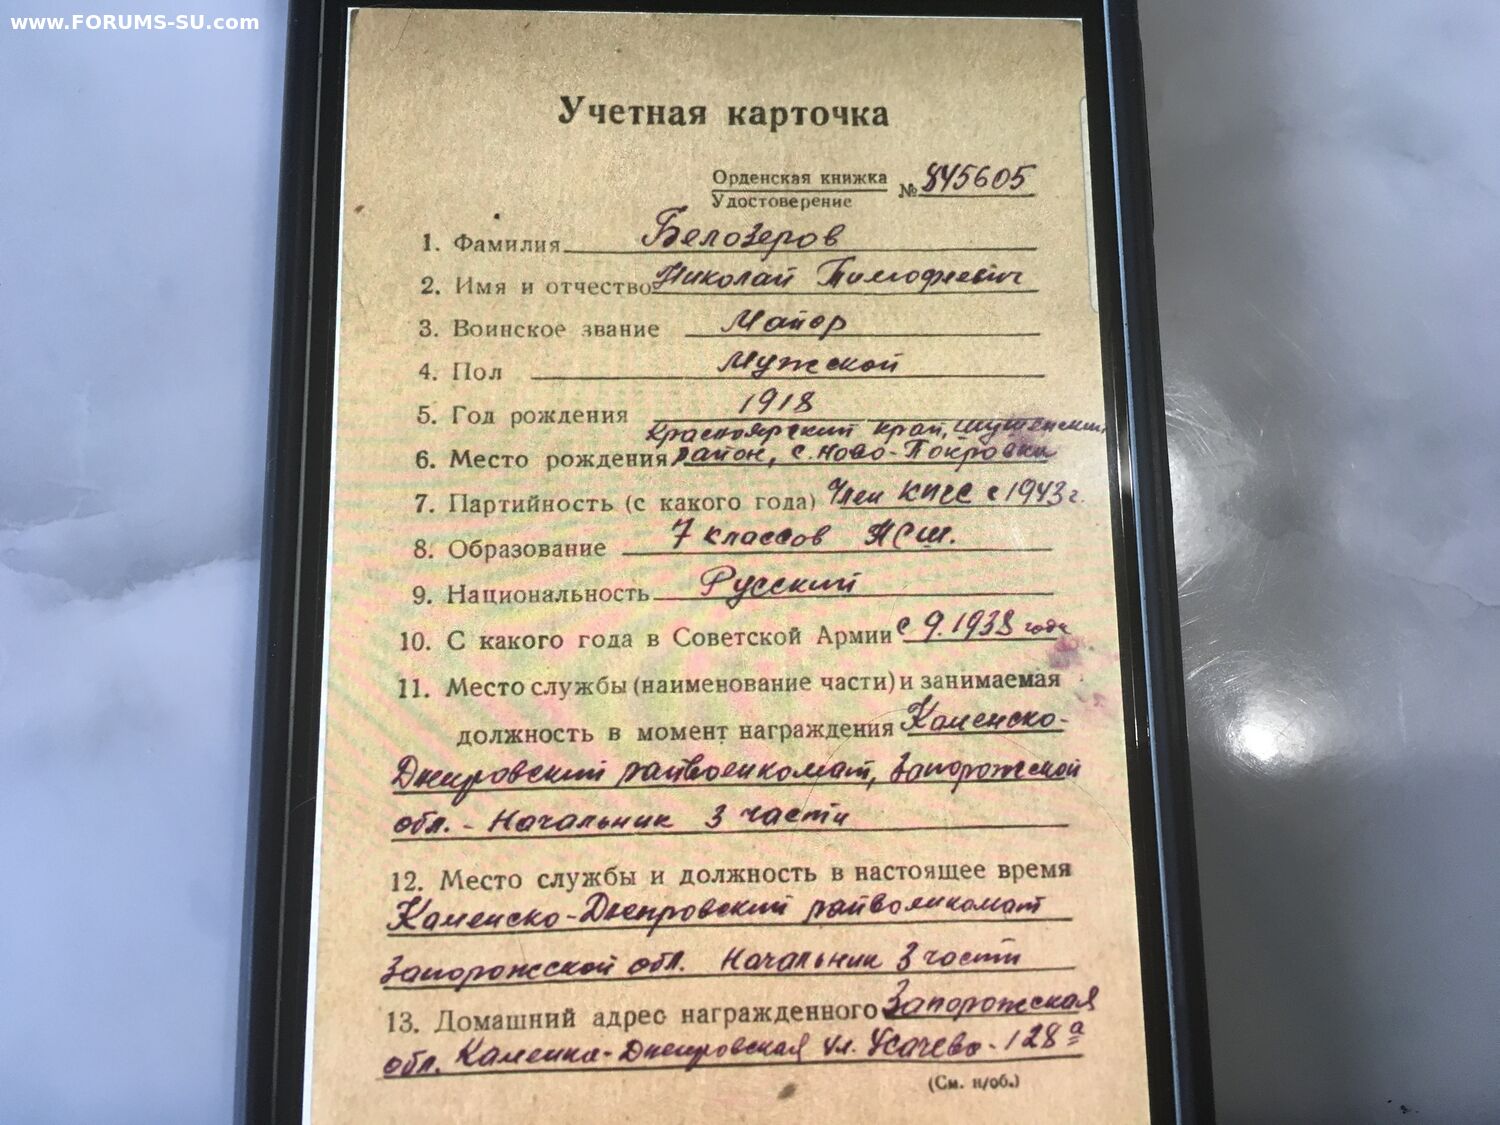 www.FORUMS-SU.com
Учетная карточка
Орденская книжка
Удостоверение
№ 845605
1. Фамилия Белозеров
2. Имя и отчество Николай Тимофеевич
3. Воинское звание Майор
4. Пол Мужской
5. Год рождения 1918
Красноярский край, Шушенский
6. Место рождения район, с. Ново-Покровка
7. Партийность (с какого года) Член КПСС с 1943 г.
8. Образование 7 классов НСШ.
9. Национальность Русский
10. С какого года в Советской Армии с 9.1938 года
11. Место службы (наименование части) и занимаемая
должность в момент награждения Каменско-
Днепровский райвоенкомат, Запорожской
обл. - Начальник 3 части
12. Место службы и должность в настоящее время
Каменско-Днепровский райвоенкомат
Запорожской обл. Начальник 3 части
13. Домашний адрес награжденного Запорожская
обл. Каменка-Днепровская ул. Усачева - 128а
(См. н/об.)